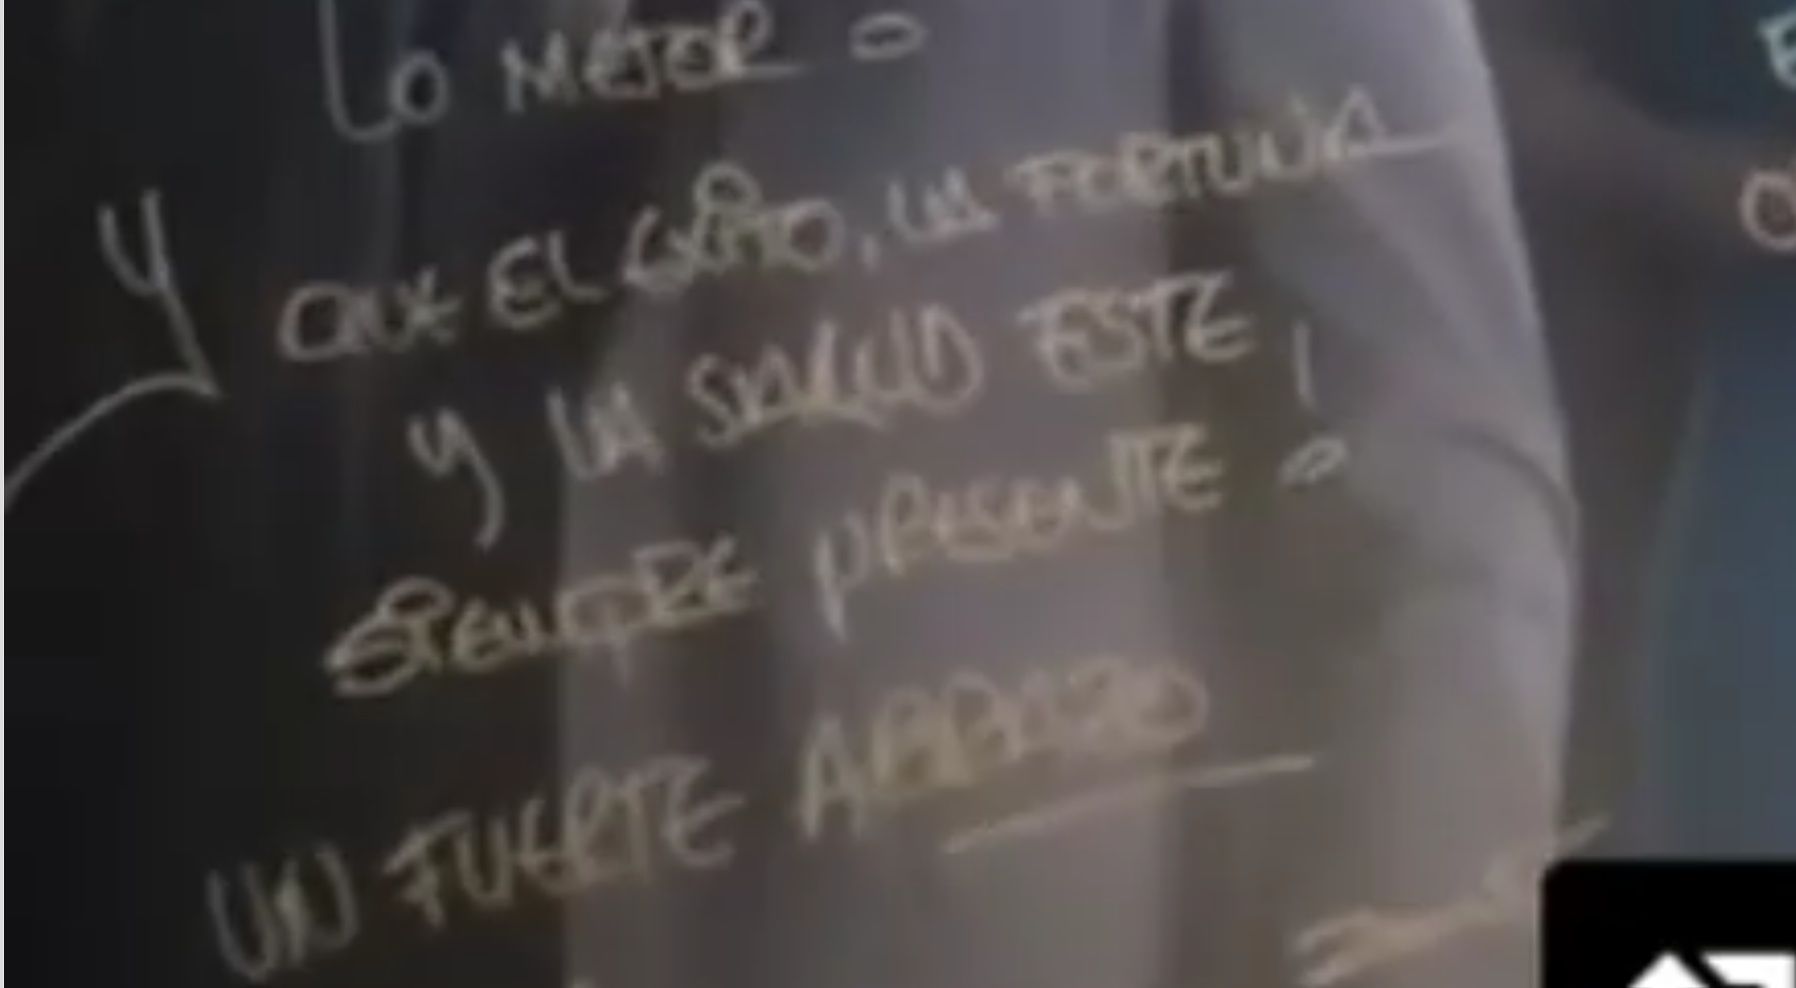 LO MEJOR
Y QUE EL EXITO, LA FORTUNA
Y LA SALUD ESTE
SIEMPRE PRESENTE!
UN FUERTE ABRAZO